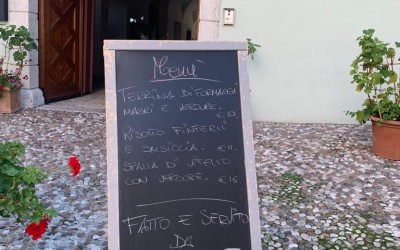 Menù
TERRINA DI FORMAGGI
MAGRI E VERDURE.
€10
RISOTTO FINFERLI
E SALSICCIA. €11
SPALLA DI VITELLO
CON VERDURE. €16
FATTO E SERVITO
DA